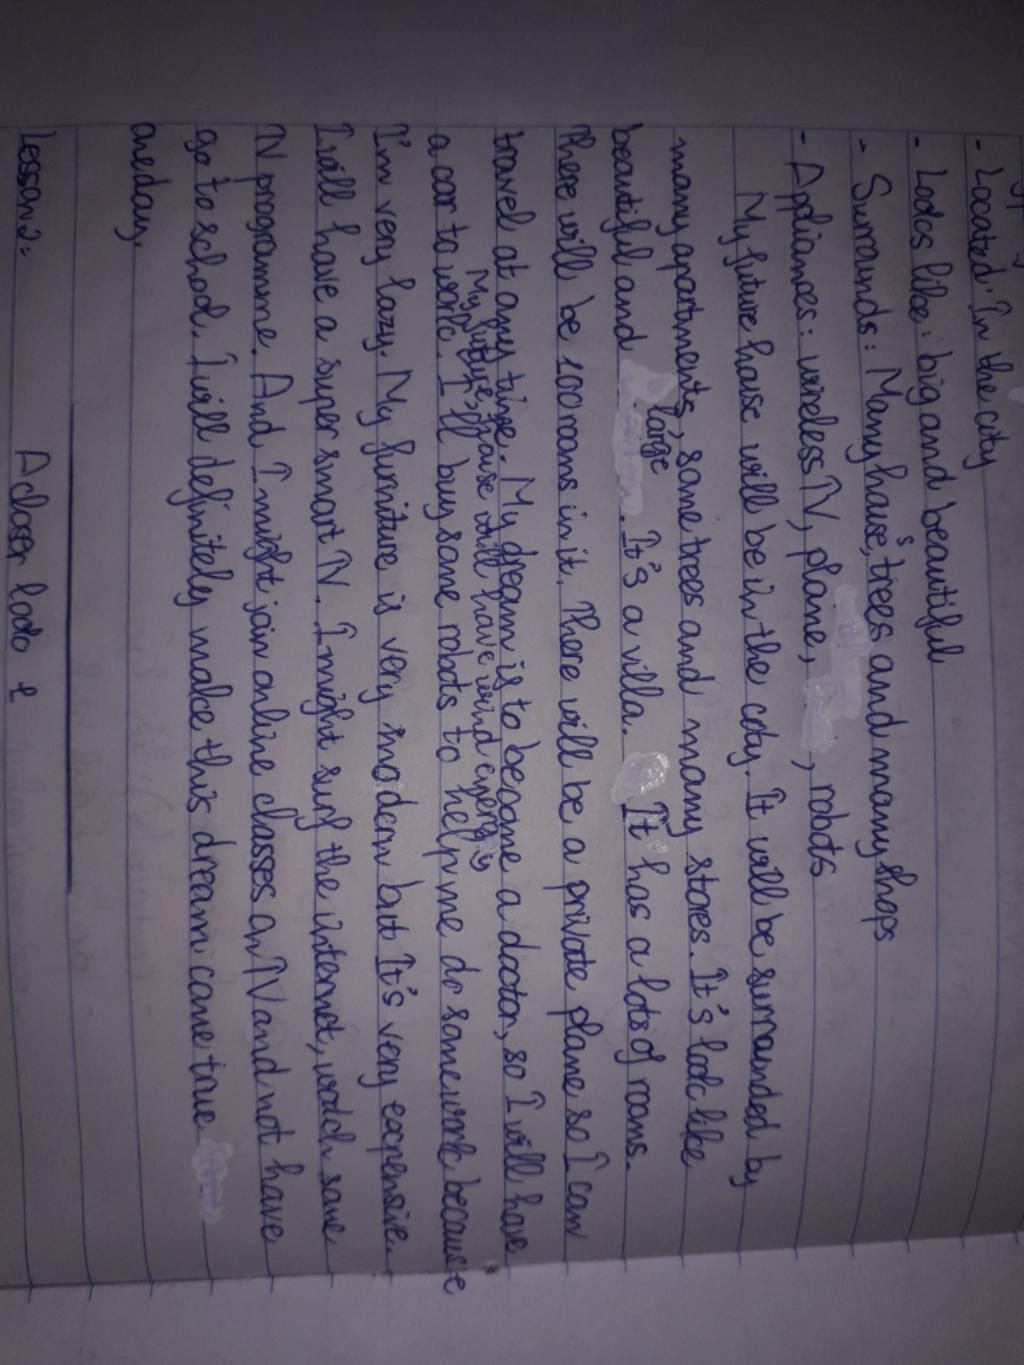 - Located: In the city
- Looks like: big and beautiful
- Surrounds: Many houses, trees and many shops
- Appliances: wireless TV, plane, , robots
My future house will be in the city. It will be surrounded by
many apartments, some trees and many stores. It's look like
beautiful and large. It's a villa. It has a lots of rooms.
There will be 100 rooms in it. There will be a private plane so I can
travel at any time. My dream is to become a doctor, so I will have
My future house will have wind energy
a car to work. I'll buy some robots to help me do some work because
I'm very lazy. My furniture is very modern but It's very expensive.
I will have a super smart TV. I might surf the internet, watch some
TV programme. And I might join online classes on TV and not have
go to school. I will definitely make this dream come true
one day.
Lesson 2: A closer look 1